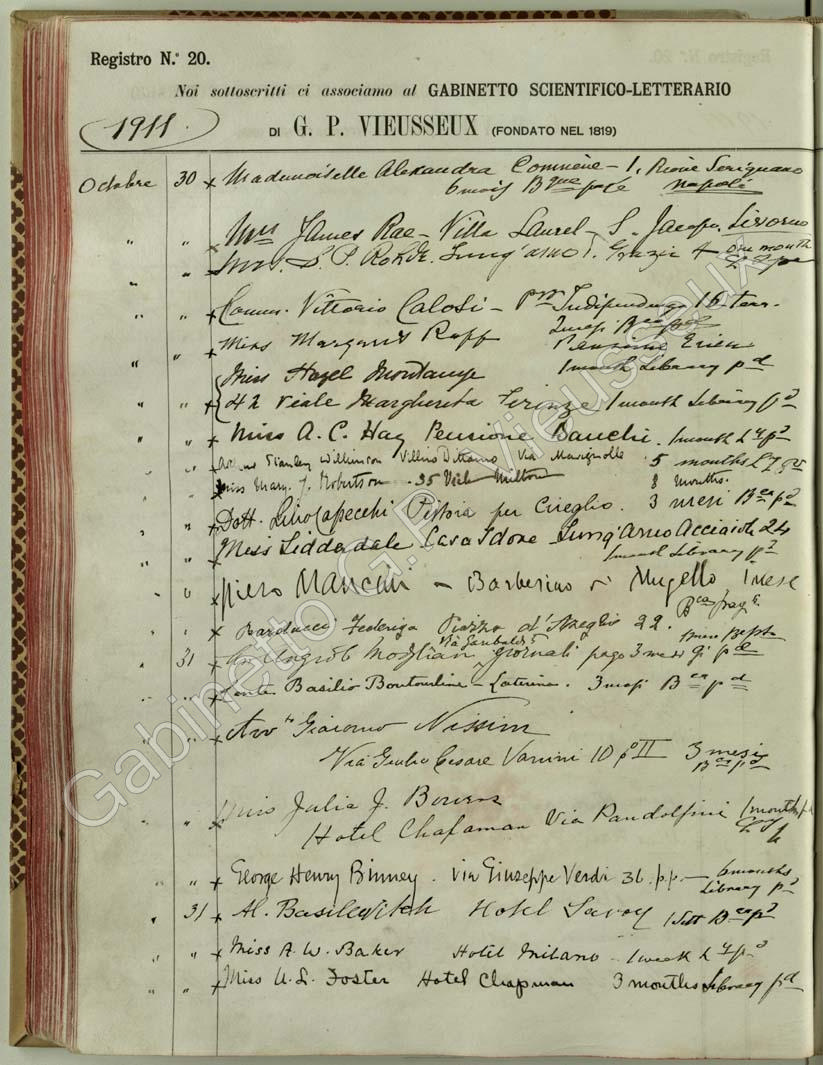 Registro N.° 20.
Noi sottoscritti ci associamo al GABINETTO SCIENTIFICO-LETTERARIO
1911
DI G. P. VIEUSSEUX (FONDATO NEL 1819)
Octobre 30 x Mademoiselle Alexandra Comnène - 1, Rione Sirignano
6 mois Bque payé Napoli
" " x Mrs James Rae - Villa Laurel - S. Jacopo, Livorno
" " Mrs. S. P. Rohde. Lung'arno d. Grazie 4 one month
" " x Comm. Vittorio Calosi - Pza Indipendenza 16 terr.
" " x Miss Margaret Ruff Pensione
1 month Library pd
Miss Hazel Montange
" " x 42 Viale Margherita Firenze 1 month Library pd
" " x Miss A. C. Hay Pensione Banchi. 1 month Ly pd
" " Arthur Stanley Wilkinson Villino Via Marignolle 5 months
" " x Miss Mary J. Robertson. 35 Viale Milton 8 months.
" " x Dott. Lilio Capecchi Pistoia per Cireglio. 3 mesi Bca pd
" " x Miss Lidderdale Casa Lung'Arno Acciaioli 24
1 month Library pd
" " x Piero Mancini - Barberino di Mugello 1 mese
" " x Barducci Federigo Piazza d'Azeglio 22.
Via Garibaldi 5
" 31 x giornali pago 3 mesi
" " x Conte Basilio Boutourline - Laterina. 3 mesi Bca pd
" " x Avv. Giacomo Nissim
Via Giulio Cesare Vanini 10 po II 3 mesi
Bca pd
" " x Miss Julia J. Bowers
Hotel Chapman Via Pandolfini 1 month
" " x George Henry Binney. via Giuseppe Verdi 36. p.p. - 6 months
Library pd
" 31 x Al. Basilevitch Hotel Savoy
" " x Miss A. W. Baker Hotel Milano - 1 week Ly pd
" " x Miss U. L. Foster Hotel Chapman 3 months Library pd
Gabinetto G.P. Vieusseux